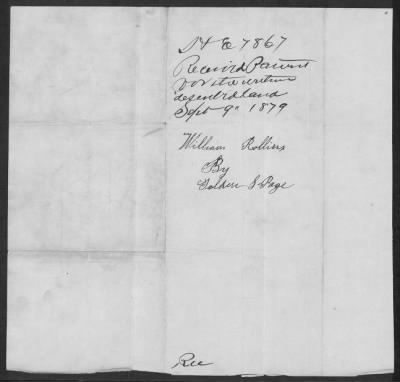 H E 7867
Received Patent
for the within
described land
Sept 9" 1879
William Rollins
By
Golden & Page
Rec